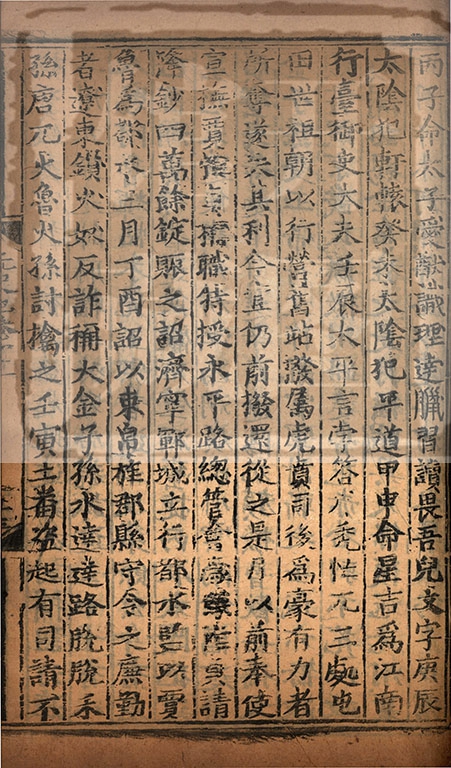 丙子命太子愛猷識理達臘習讀畏吾兒文字庚辰
太陰犯軒轅癸未太陰犯平道甲申命星吉爲江南
行臺御史大夫壬辰太平言孛答乃禿忙兀三處屯
田世祖朝以行營舊站撥屬虎賁司後爲豪有力者
所奪遂失其利今宜仍前撥還從之是月以前奉使
宣撫賈惟貞稱職特授永平路總管會歲饑惟貞請
降鈔四萬餘錠賑之詔濟寧鄆城立行都水監以賈
魯爲都水三月丁酉詔以束帛旌郡縣守令之廉勤
者遼東鎖火奴反詐稱大金子孫水達達路脫脫禾
孫唐兀火魯火孫討擒之壬寅土番盗起有司請不